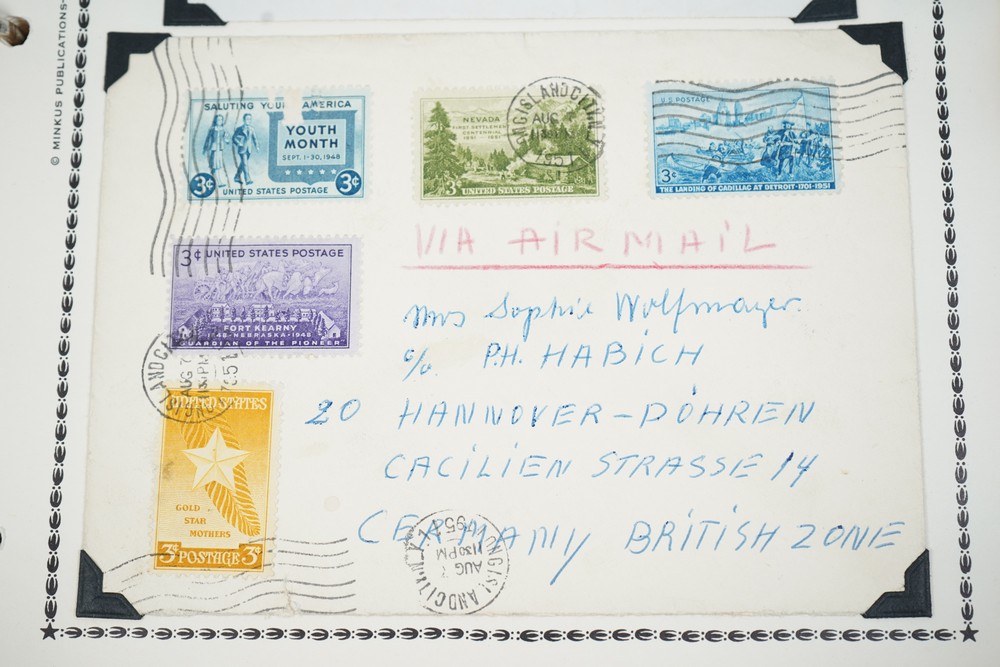 © MINKUS PUBLICATIONS
SALUTING YOUNG AMERICA
YOUTH
MONTH
SEPT. 1-30, 1948
3¢ 3¢
UNITED STATES POSTAGE
NEVADA
FIRST SETTLEMENT
CENTENNIAL
1851 1951
3¢ UNITED STATES POSTAGE
LONG ISLAND CITY, N.Y.
AUG
U.S. POSTAGE
3¢
THE LANDING OF CADILLAC AT DETROIT·1701-1951
VIA AIR MAIL
3¢ UNITED STATES POSTAGE
FORT KEARNY
1848·NEBRASKA·1948
GUARDIAN OF THE PIONEER
ISLAND CITY
AUG 7
1130 PM
1951
Mrs Sophie Wolfmayer.
c/o P.H. HABICH
20 HANNOVER-DÖHREN
CACILIEN STRASSE 14
GERMANY BRITISH ZONE
UNITED STATES
GOLD
STAR
MOTHERS
3¢ POSTAGE 3¢
LONG ISLAND CITY, N.Y.
AUG 7
1130 PM
1951